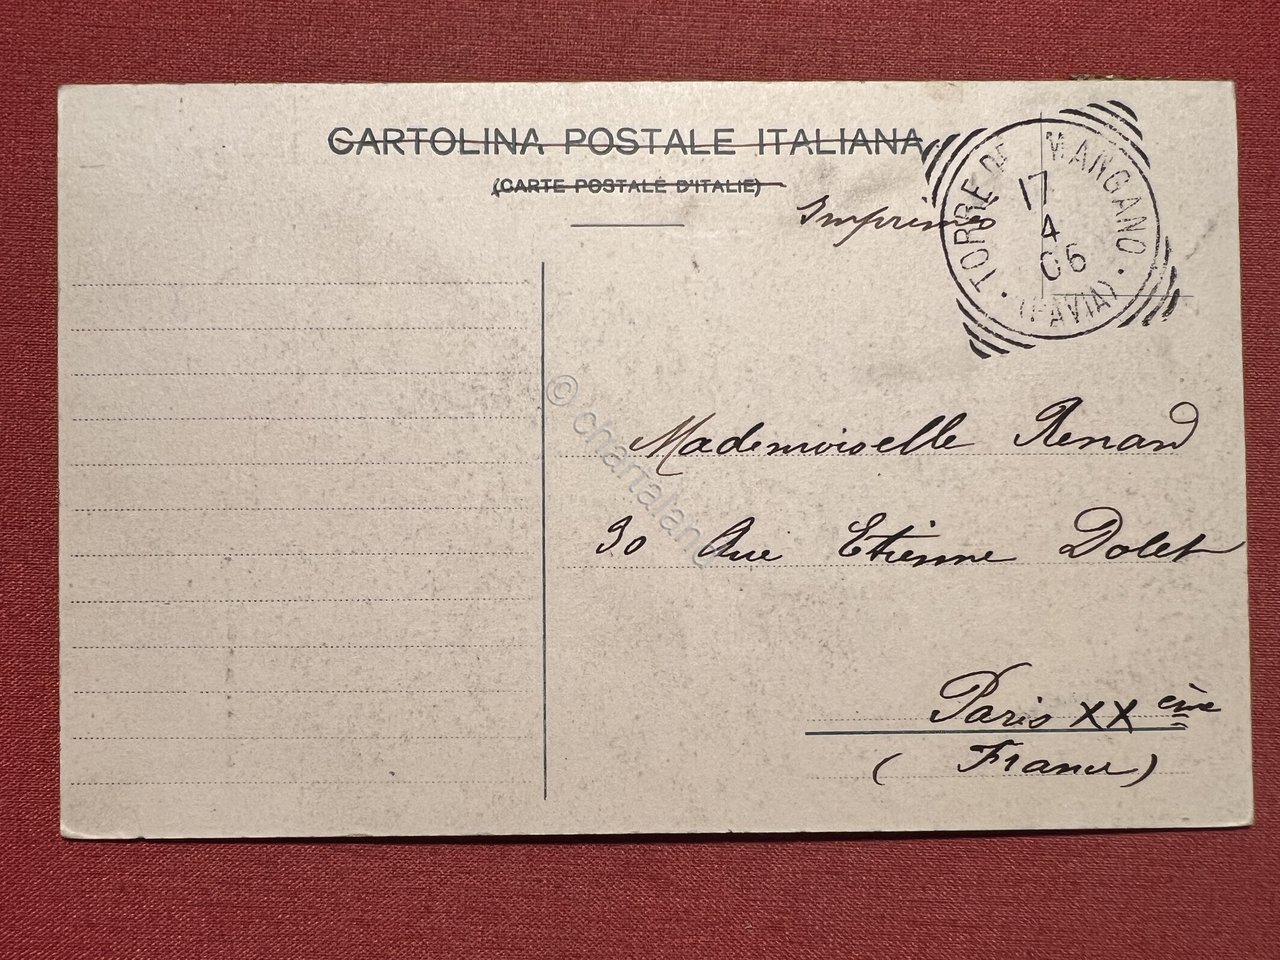 CARTOLINA POSTALE ITALIANA
(CARTE POSTALE D'ITALIE)
Imprimés
TORRE DE MANGANO
17
4
06
(PAVIA)
© chartaland
Mademoiselle Renard
30 Rue Etienne Dolet
Paris XX ème
(France)